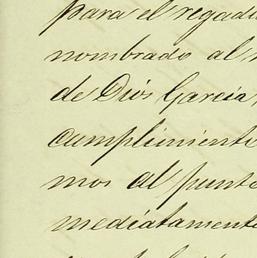 para el regadí
nombrado al
de Dios Garcia,
cumplimiento
mos al punto
mediatamente